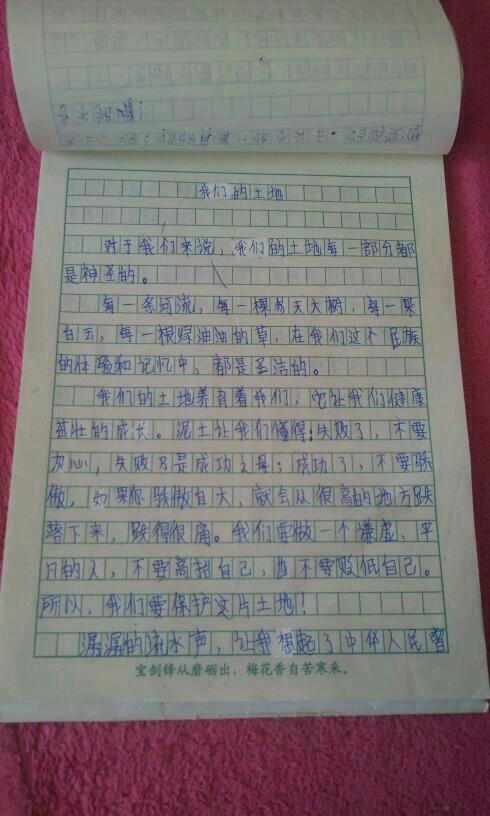 我们的土地
对于我们来说，我们的土地每一部分都
是神圣的。
每一条河流，每一棵参天大树，每一朵
白云，每一根绿油油的草，在我们这个民族
的体验和记忆中，都是圣洁的。
我们的土地养育着我们，它让我们健康
茁壮的成长。泥土让我们懂得：失败了，不要
灰心，失败乃是成功之母；成功了，不要骄
傲，如果你骄傲自大，就会从很高的地方跌
落下来，跌得很痛。我们要做一个谦虚、平
凡的人，不要高抬自己，也不要贬低自己。
所以，我们要保护这片土地！
潺潺的流水声，让我想起了中华人民曾
宝剑锋从磨砺出，梅花香自苦寒来。